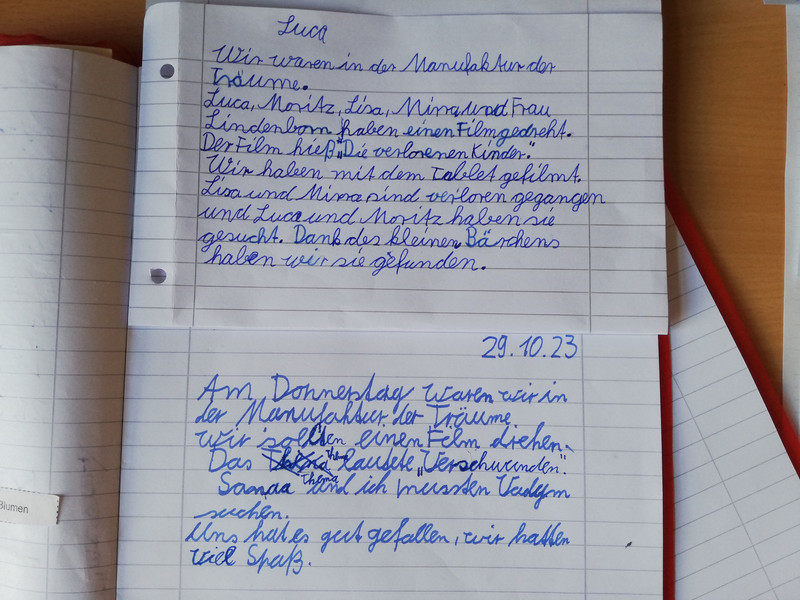 Luca
Wir waren in der Manufaktur der
Träume.
Luca, Moritz, Lisa, Mirra und Frau
Lindenborn haben einen Film gedreht.
Der Film hieß „Die verlorenen Kinder."
Wir haben mit dem Tablet gefilmt.
Lisa und Mirra sind verloren gegangen
und Luca und Moritz haben sie
gesucht. Dank des kleinen Bärchens
haben wir sie gefunden.
29.10.23
Am Donnerstag waren wir in
der Manufaktur der Träume.
Wir sollten einen Film drehen.
Das Thema lautete „Verschwunden".
und ich mussten Vadym
suchen.
Uns hat es gut gefallen, wir hatten
viel Spaß.
Blumen